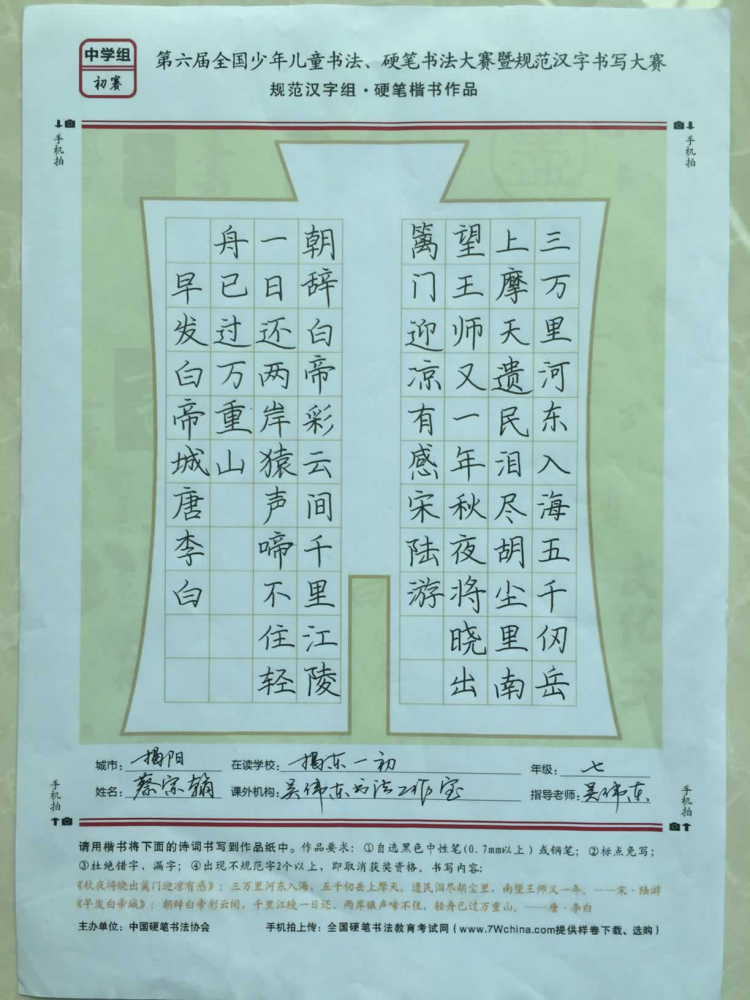 中学组
初赛
第六届全国少年儿童书法、硬笔书法大赛暨规范汉字书写大赛
规范汉字组·硬笔楷书作品
手机拍
手机拍
三万里河东入海五千仞岳
上摩天遗民泪尽胡尘里南
望王师又一年秋夜将晓出
篱门迎凉有感宋陆游
朝辞白帝彩云间千里江陵
一日还两岸猿声啼不住轻
舟已过万重山
早发白帝城唐李白
城市：揭阳 在读学校：揭东一初 年级：七
姓名：蔡宗翰 课外机构：吴伟东书法工作室 指导老师：吴伟东
手机拍
手机拍
请用楷书将下面的诗词书写到作品纸中。作品要求：①自选黑色中性笔(0.7mm以上)或钢笔；②标点免写；
③杜绝错字，漏字；④出现不规范字2个以上，即取消获奖资格。书写内容：
《秋夜将晓出篱门迎凉有感》：三万里河东入海，五千仞岳上摩天。遗民泪尽胡尘里，南望王师又一年。——宋·陆游
《早发白帝城》：朝辞白帝彩云间，千里江陵一日还。两岸猿声啼不住，轻舟已过万重山。——唐·李白
主办单位：中国硬笔书法协会 手机拍上传：全国硬笔书法教育考试网(www.7Wchina.com提供样卷下载、选购)